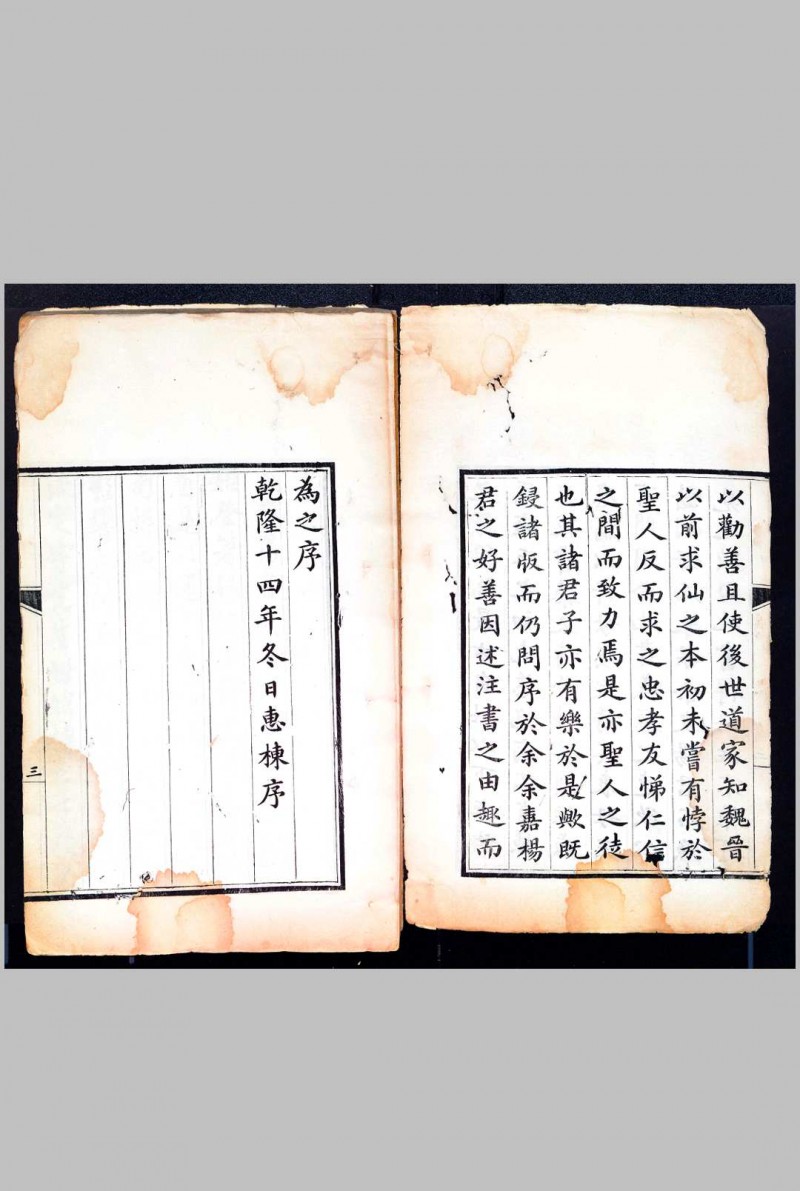 以勸善且使後世道家知魏晉
以前求仙之本初未嘗有悖於
聖人反而求之忠孝友悌仁信
之間而致力焉是亦聖人之徒
也其諸君子亦有樂於是歟既
鋟諸版而仍問序於余余嘉楊
君之好善因述注書之由趣而
為之序
乾隆十四年冬日惠棟序
三